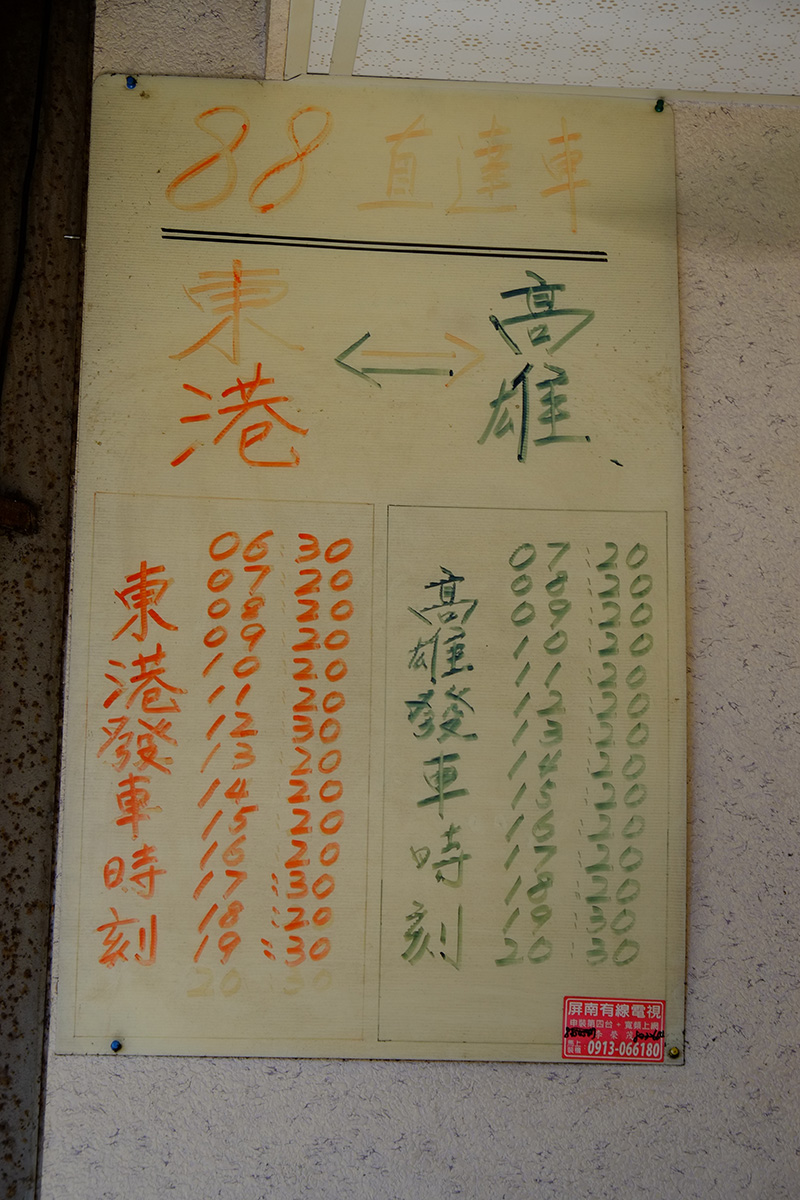 88 直達車
東港
高雄
東港發車時刻
06:30
07:20
08:20
09:20
10:20
11:20
12:30
13:20
14:20
15:20
16:20
17:30
18:20
19:30
20 30
高雄發車時刻
07:20
08:20
09:20
10:20
11:20
12:20
13:20
14:20
15:20
16:20
17:20
18:20
19:30
20:30
屏南有線電視
申裝第四台・寬頻上網
馬上裝機 0913-066180